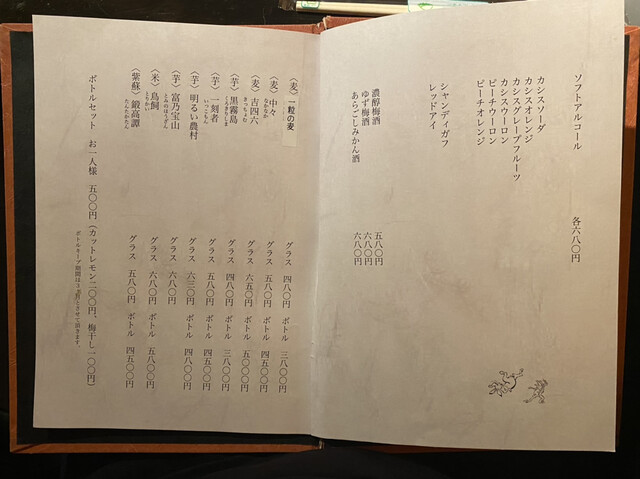 ソフトアルコール 各六八〇円
カシスソーダ
カシスオレンジ
カシスグレープフルーツ
カシスウーロン
ピーチウーロン
ピーチオレンジ
シャンディガフ
レッドアイ
濃醇梅酒 五八〇円
ゆず梅酒 六八〇円
あらごしみかん酒 六八〇円
〈麦〉 一粒の麦 グラス 四八〇円 ボトル 三八〇〇円
〈麦〉 中々 グラス 五八〇円 ボトル 四五〇〇円
なかなか
〈麦〉 吉四六 グラス 六五〇円 ボトル 五〇〇〇円
きっちょむ
〈芋〉 黒霧島 グラス 四八〇円 ボトル 三八〇〇円
くろきりしま
〈芋〉 一刻者 グラス 五八〇円 ボトル 四五〇〇円
いっこもん
〈芋〉 明るい農村 グラス 六三〇円 ボトル 四八〇〇円
〈芋〉 富乃宝山 グラス 六八〇円
とみのほうざん
〈米〉 鳥飼 グラス 六八〇円 ボトル 五八〇〇円
とりかい
〈紫蘇〉 鍛高譚 グラス 五八〇円 ボトル 四五〇〇円
たんたかたん
ボトルセット お一人様 五〇〇円 (カットレモン二〇〇円、梅干し一〇〇円)
ボトルキープ期間は3ヵ月とさせて頂きます。